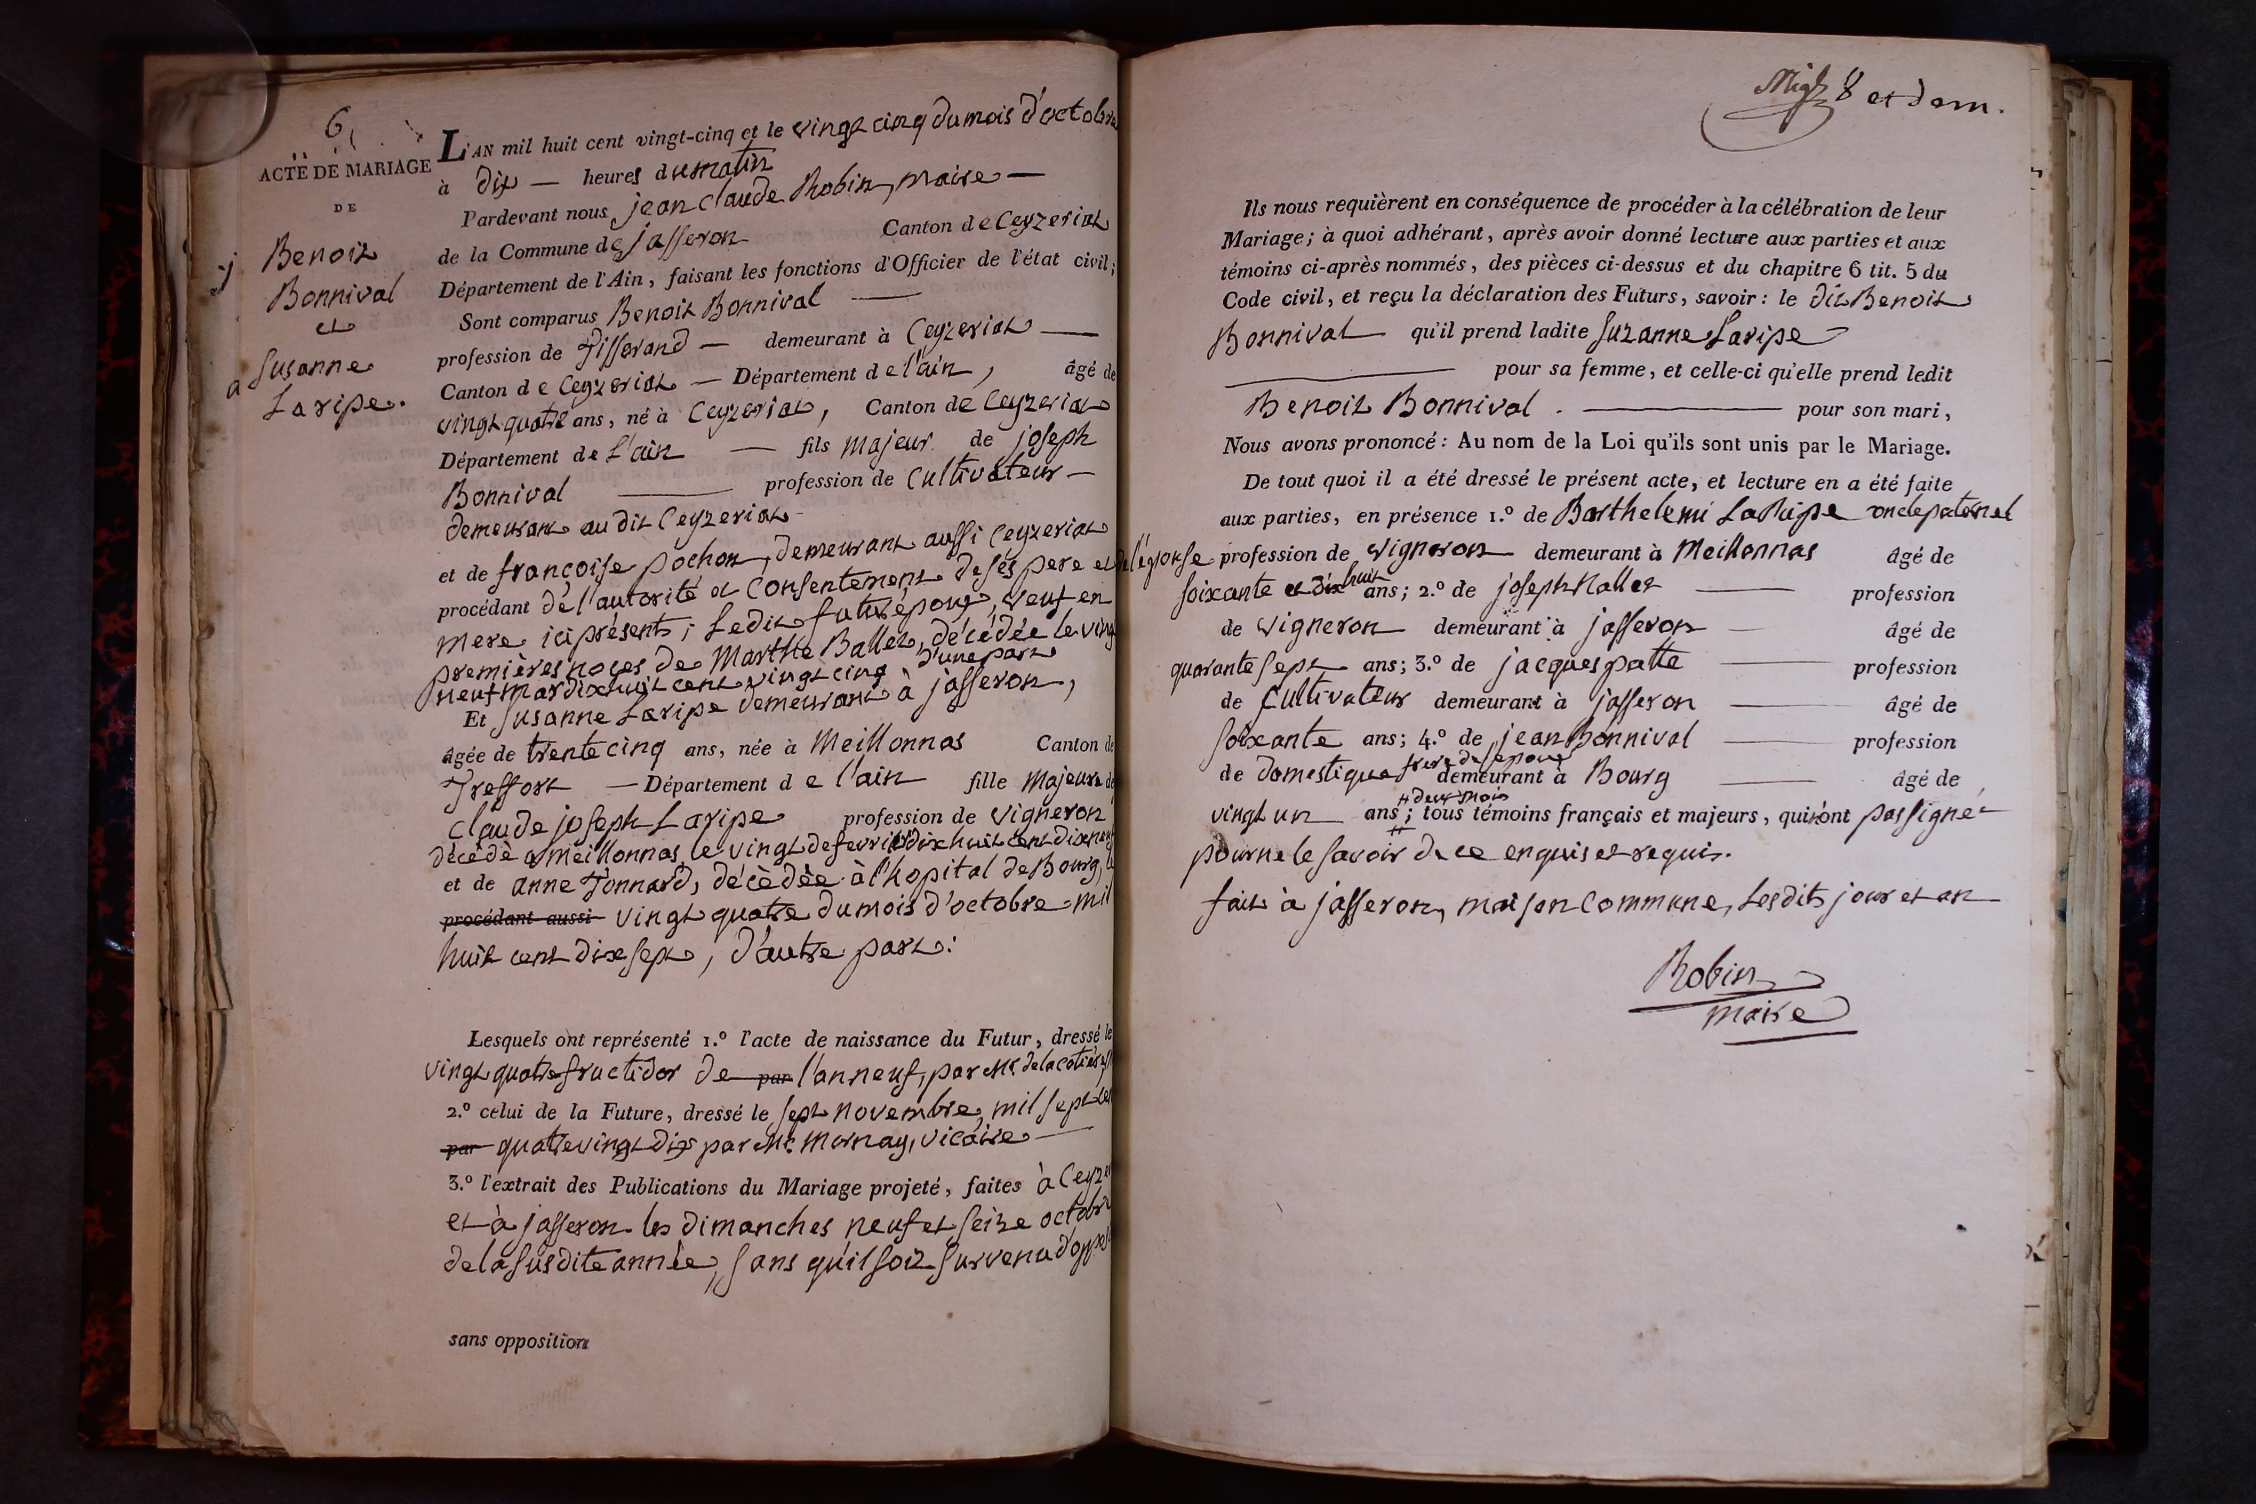 6
ACTE DE MARIAGE
DE
Benoit
Bonnival
et
Susanne
Laripe.
L'AN mil huit cent vingt-cinq et le vingt cinq du mois d'octobre
à dix — heures du matin
Pardevant nous jean Claude Robin, maire —
de la Commune de jasseron Canton de Ceyzeriat
Département de l'Ain, faisant les fonctions d'Officier de l'état civil;
Sont comparus Benoit Bonnival —
profession de Tisserand — demeurant à Ceyzeriat —
Canton de Ceyzeriat — Département de l'ain, âgé de
vingt quatre ans, né à Ceyzeriat, Canton de Ceyzeriat
Département de L'ain — fils majeur de joseph
Bonnival — profession de Cultivateur —
demeurant au dit Ceyzeriat
et de françoise pochon, demeurant aussi Ceyzeriat
procédant de l'autorité et Consentement de ses pere et
mere ici présents; Ledit futur époux, veuf en
premières noces de Marthe Ballet, décédée le vingt
neuf mar dix huit cent vingt cinq d'une part
Et Susanne Laripe demeurant à jasseron,
âgée de trente cinq ans, née à Meillonnas Canton de
Treffort — Département de l'ain fille Majeure de
Claude joseph Laripe profession de vigneron
décédé à Meillonnas le vingt de fevrier dix huit cent dix neuf
et de anne Tonnard, décédée à l'hopital de Bourg, le
procédant aussi vingt quatre du mois d'octobre mil
huit cent dix sept, d'autre part.
Lesquels ont représenté 1.º l'acte de naissance du Futur, dressé le
vingt quatre fructidor de par l'an neuf, par Mr. delacotière
2.º celui de la Future, dressé le sept novembre mil sept cent
par quatre vingt dix par Mr. Mornay, vicaire —
3.º l'extrait des Publications du Mariage projeté, faites à Ceyze
et à jasseron les dimanches neuf et seize octobre
de la susdite année, sans qu'il soit survenu d'oppos
sans opposition
8 et dem.
Ils nous requièrent en conséquence de procéder à la célébration de leur
Mariage; à quoi adhérant, après avoir donné lecture aux parties et aux
témoins ci-après nommés, des pièces ci-dessus et du chapitre 6 tit. 5 du
Code civil, et reçu la déclaration des Futurs, savoir: le dit Benoit
Bonnival qu'il prend ladite Suzanne Laripe —
— pour sa femme, et celle-ci qu'elle prend ledit
Benoit Bonnival. — pour son mari,
Nous avons prononcé: Au nom de la Loi qu'ils sont unis par le Mariage.
De tout quoi il a été dressé le présent acte, et lecture en a été faite
aux parties, en présence 1.º de Barthelemi LaRipe oncle paternel
de l'éponse profession de vigneron demeurant à Meillonnas âgé de
soixante et dix huit ans; 2.º de joseph Nallet — profession
de vigneron demeurant à jasseron — âgé de
quarante sept ans; 3.º de jacques patte — profession
de Cultivateur demeurant à jasseron — âgé de
soixante ans; 4.º de jean Bonnival — profession
de domestique frere de l'epoux demeurant à Bourg — âgé de
vingt un ans; # deux mois tous témoins français et majeurs, qui n'ont pas signé
pour ne le savoir de ce enquis et requis.
fait à jasseron, maison Commune, Lesdits jour et an
Robin
maire